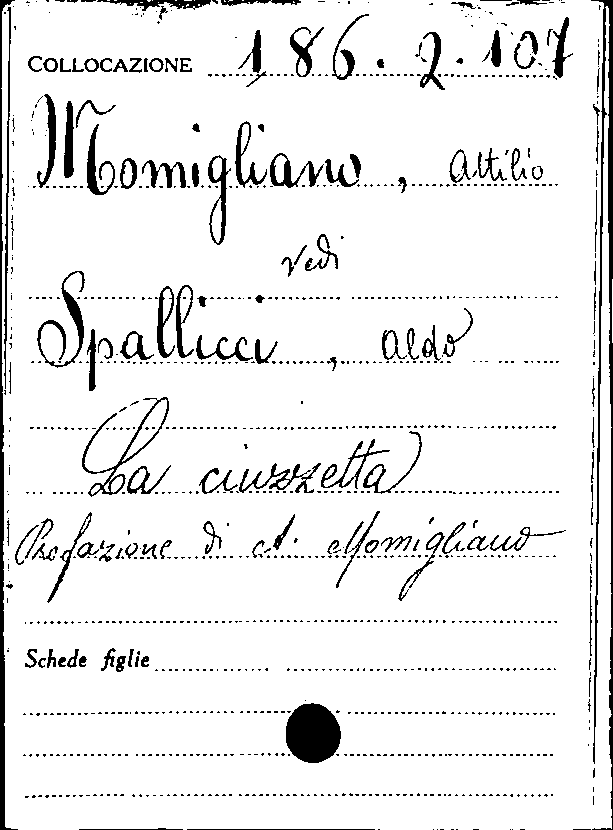 COLLOCAZIONE 186.2.107
Momigliano, Attilio
vedi
Spallicci, Aldo
La ciuzzetta
Prefazione di A. Momigliano
Schede figlie